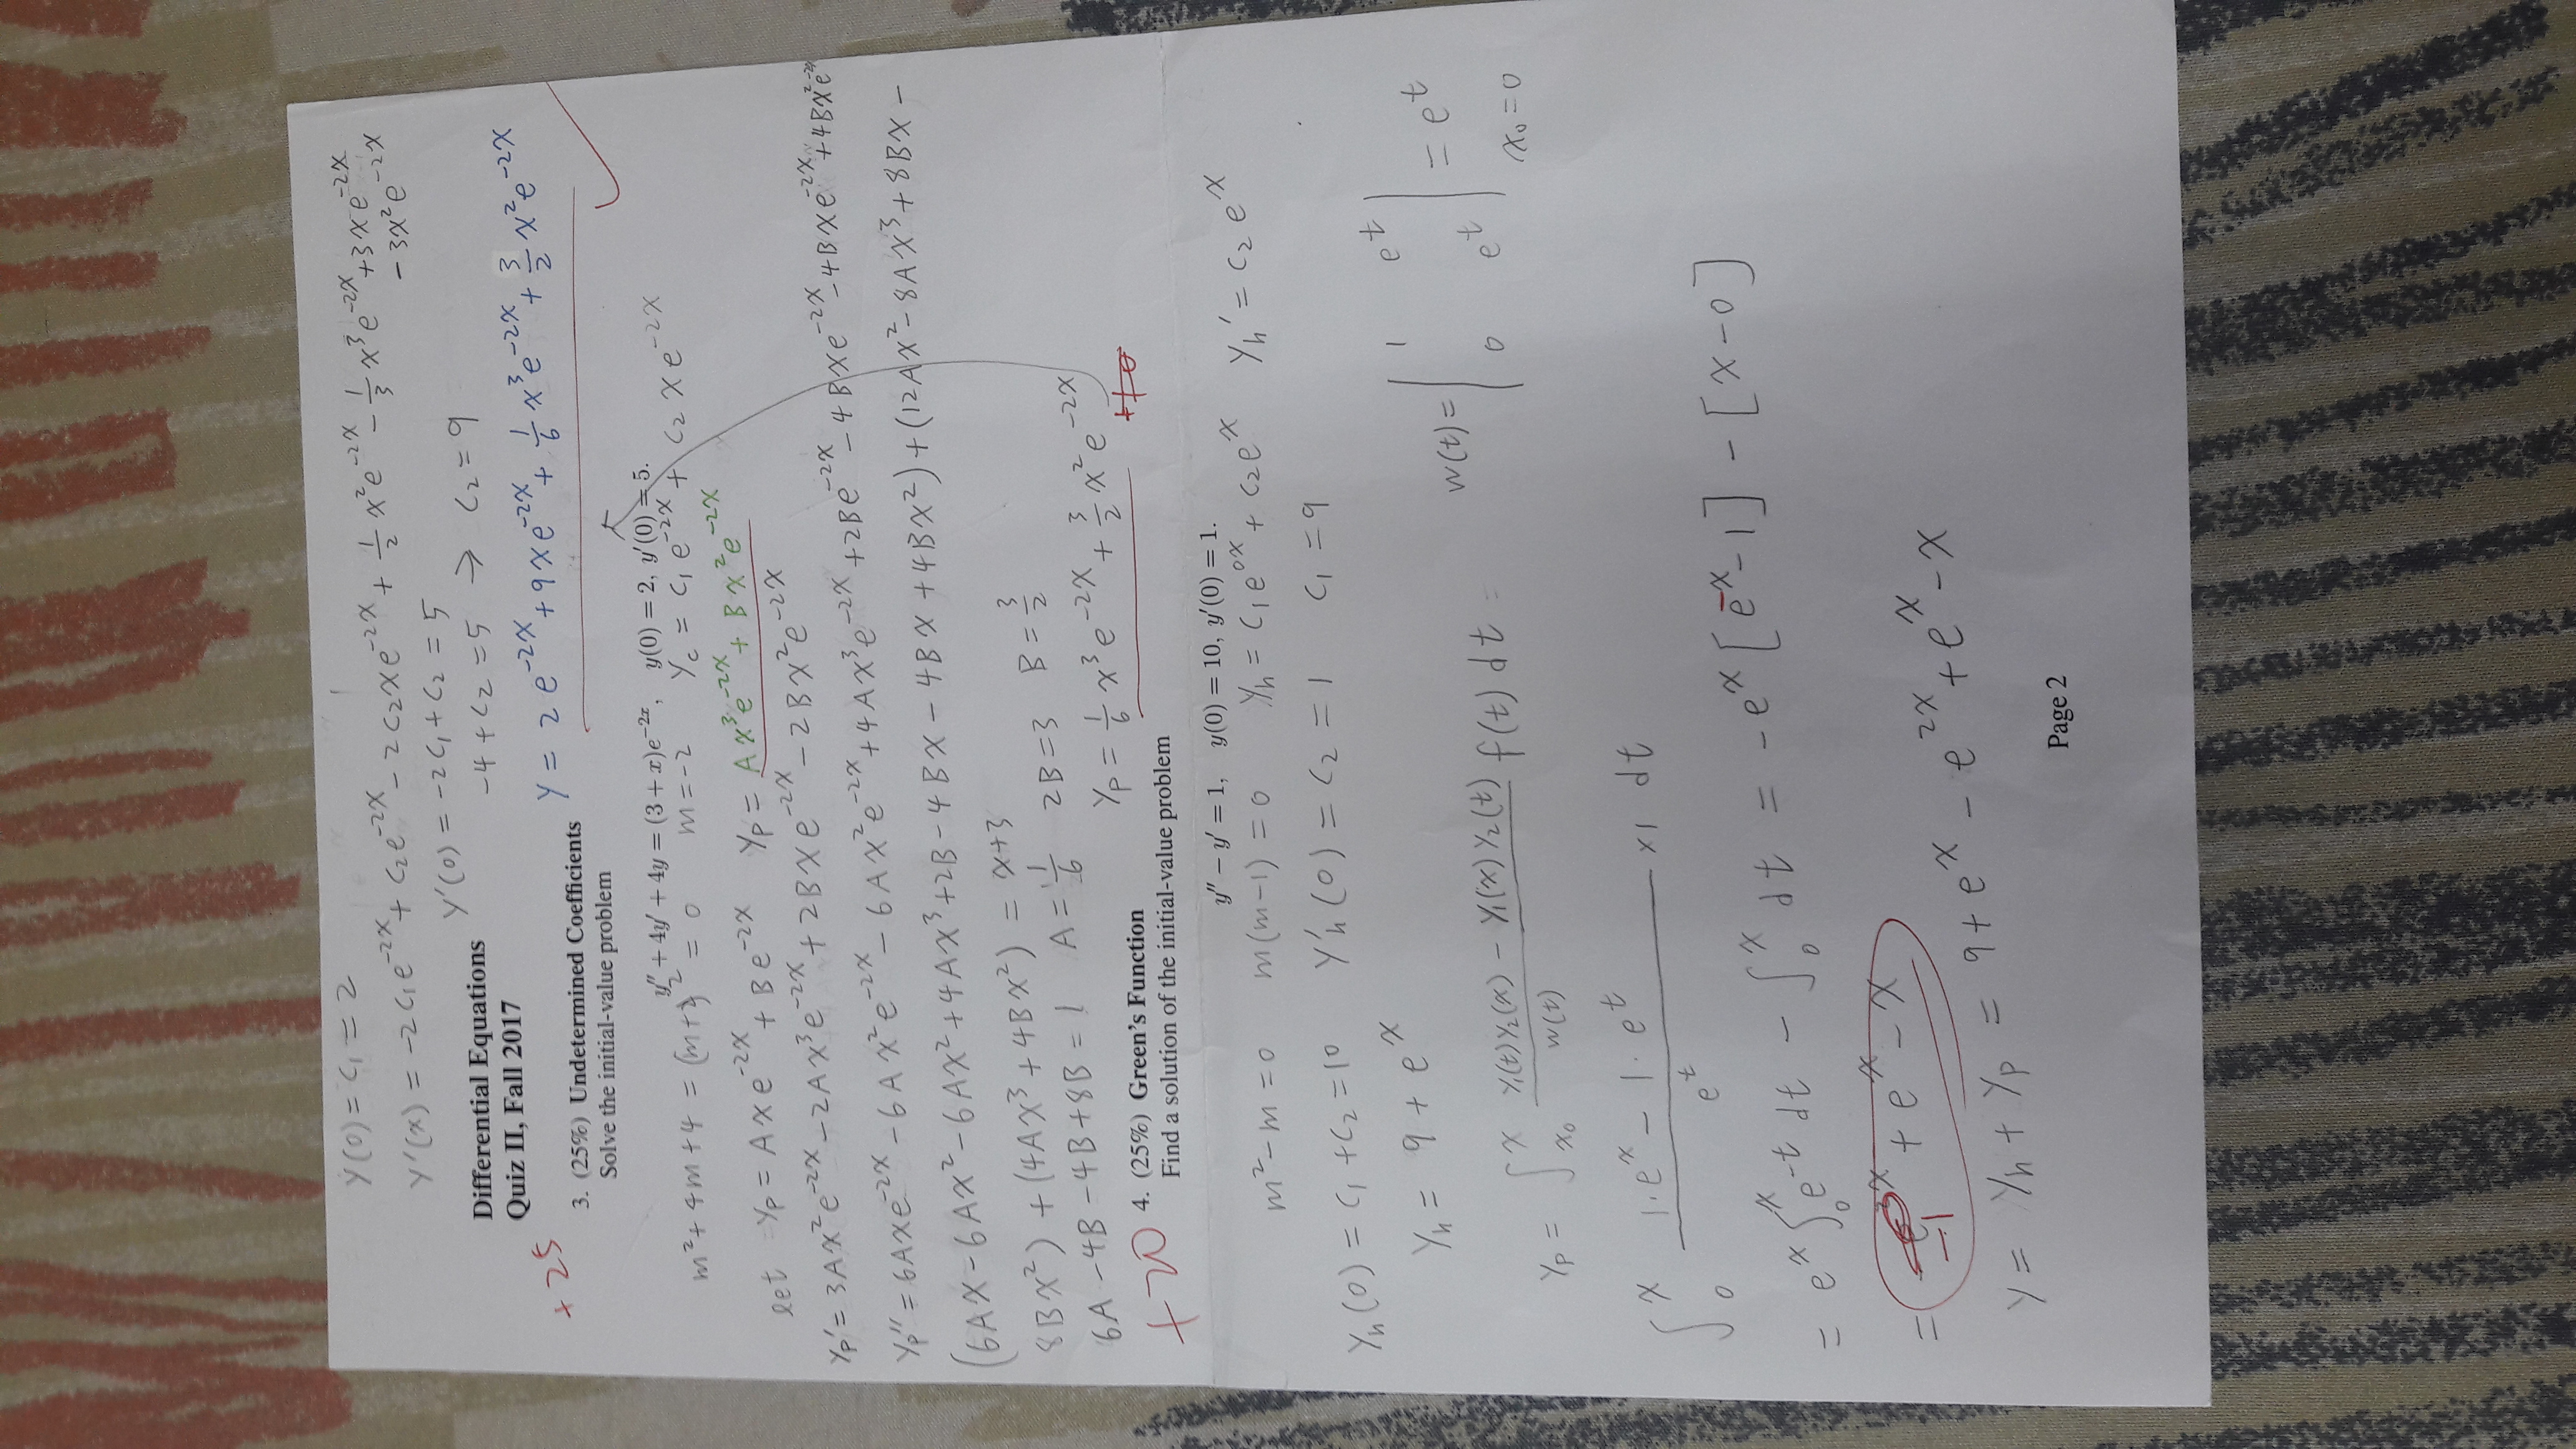 y(0) = c₁ = 2
y'(x) = -2c₁e^{-2x} + c₂e^{-2x} - 2c₂xe^{-2x} + \frac{1}{2}x²e^{-2x} - \frac{1}{3}x³e^{-2x} + 3xe^{-2x}
- 3x²e^{-2x}
y'(0) = -2c₁ + c₂ = 5
Differential Equations
-4 + c₂ = 5 → c₂ = 9
Quiz II, Fall 2017
+25
y = 2e^{-2x} + 9xe^{-2x} + \frac{1}{6}x³e^{-2x} + \frac{3}{2}x²e^{-2x}
3. (25%) Undetermined Coefficients
Solve the initial-value problem
y'' + 4y' + 4y = (3 + x)e^{-2x}, y(0) = 2, y'(0) = 5.
m² + 4m + 4 = (m+2)² = 0 m = -2 y_c = c₁e^{-2x} + c₂xe^{-2x}
let y_p = Axe^{-2x} + Be^{-2x} y_p = Ax³e^{-2x} + Bx²e^{-2x}
y_p' = 3Ax²e^{-2x} - 2Ax³e^{-2x} + 2Bxe^{-2x} - 2Bx²e^{-2x}
y_p'' = 6Axe^{-2x} - 6Ax²e^{-2x} - 6Ax²e^{-2x} + 4Ax³e^{-2x} + 2Be^{-2x} - 4Bxe^{-2x} - 4Bxe^{-2x} + 4Bx²e^{-2x}
(6Ax - 6Ax² - 6Ax² + 4Ax³ + 2B - 4Bx - 4Bx + 4Bx²) + (12Ax² - 8Ax³ + 8Bx -
8Bx²) + (4Ax³ + 4Bx²) = x+3
6A - 4B - 4B + 8B = 1 A = \frac{1}{6} 2B = 3 B = \frac{3}{2}
y_p = \frac{1}{6}x³e^{-2x} + \frac{3}{2}x²e^{-2x}
+10
+20
4. (25%) Green's Function
Find a solution of the initial-value problem
y'' - y' = 1, y(0) = 10, y'(0) = 1.
m² - m = 0 m(m-1) = 0 y_h = c₁e^{0x} + c₂e^x y_h' = c₂e^x
y_h(0) = c₁ + c₂ = 10 y'_h(0) = c₂ = 1 c₁ = 9
y_h = 9 + e^x
w(t) = | 1 e^t
0 e^t | = e^t
x₀ = 0
y_p = ∫_{x₀}^{x} \frac{y₁(t)y₂(x) - y₁(x)y₂(t)}{w(t)} f(t) dt =
∫_0^x \frac{1·e^x - 1·e^t}{e^t} ×1 dt
= e^x ∫_0^x e^{-t} dt - ∫_0^x dt = -e^x [e^{-x} - 1] - [x - 0]
= -e^{2x} + e^x - x
-1
y = y_h + y_p = 9 + e^x - e^{2x} + e^x - x
Page 2